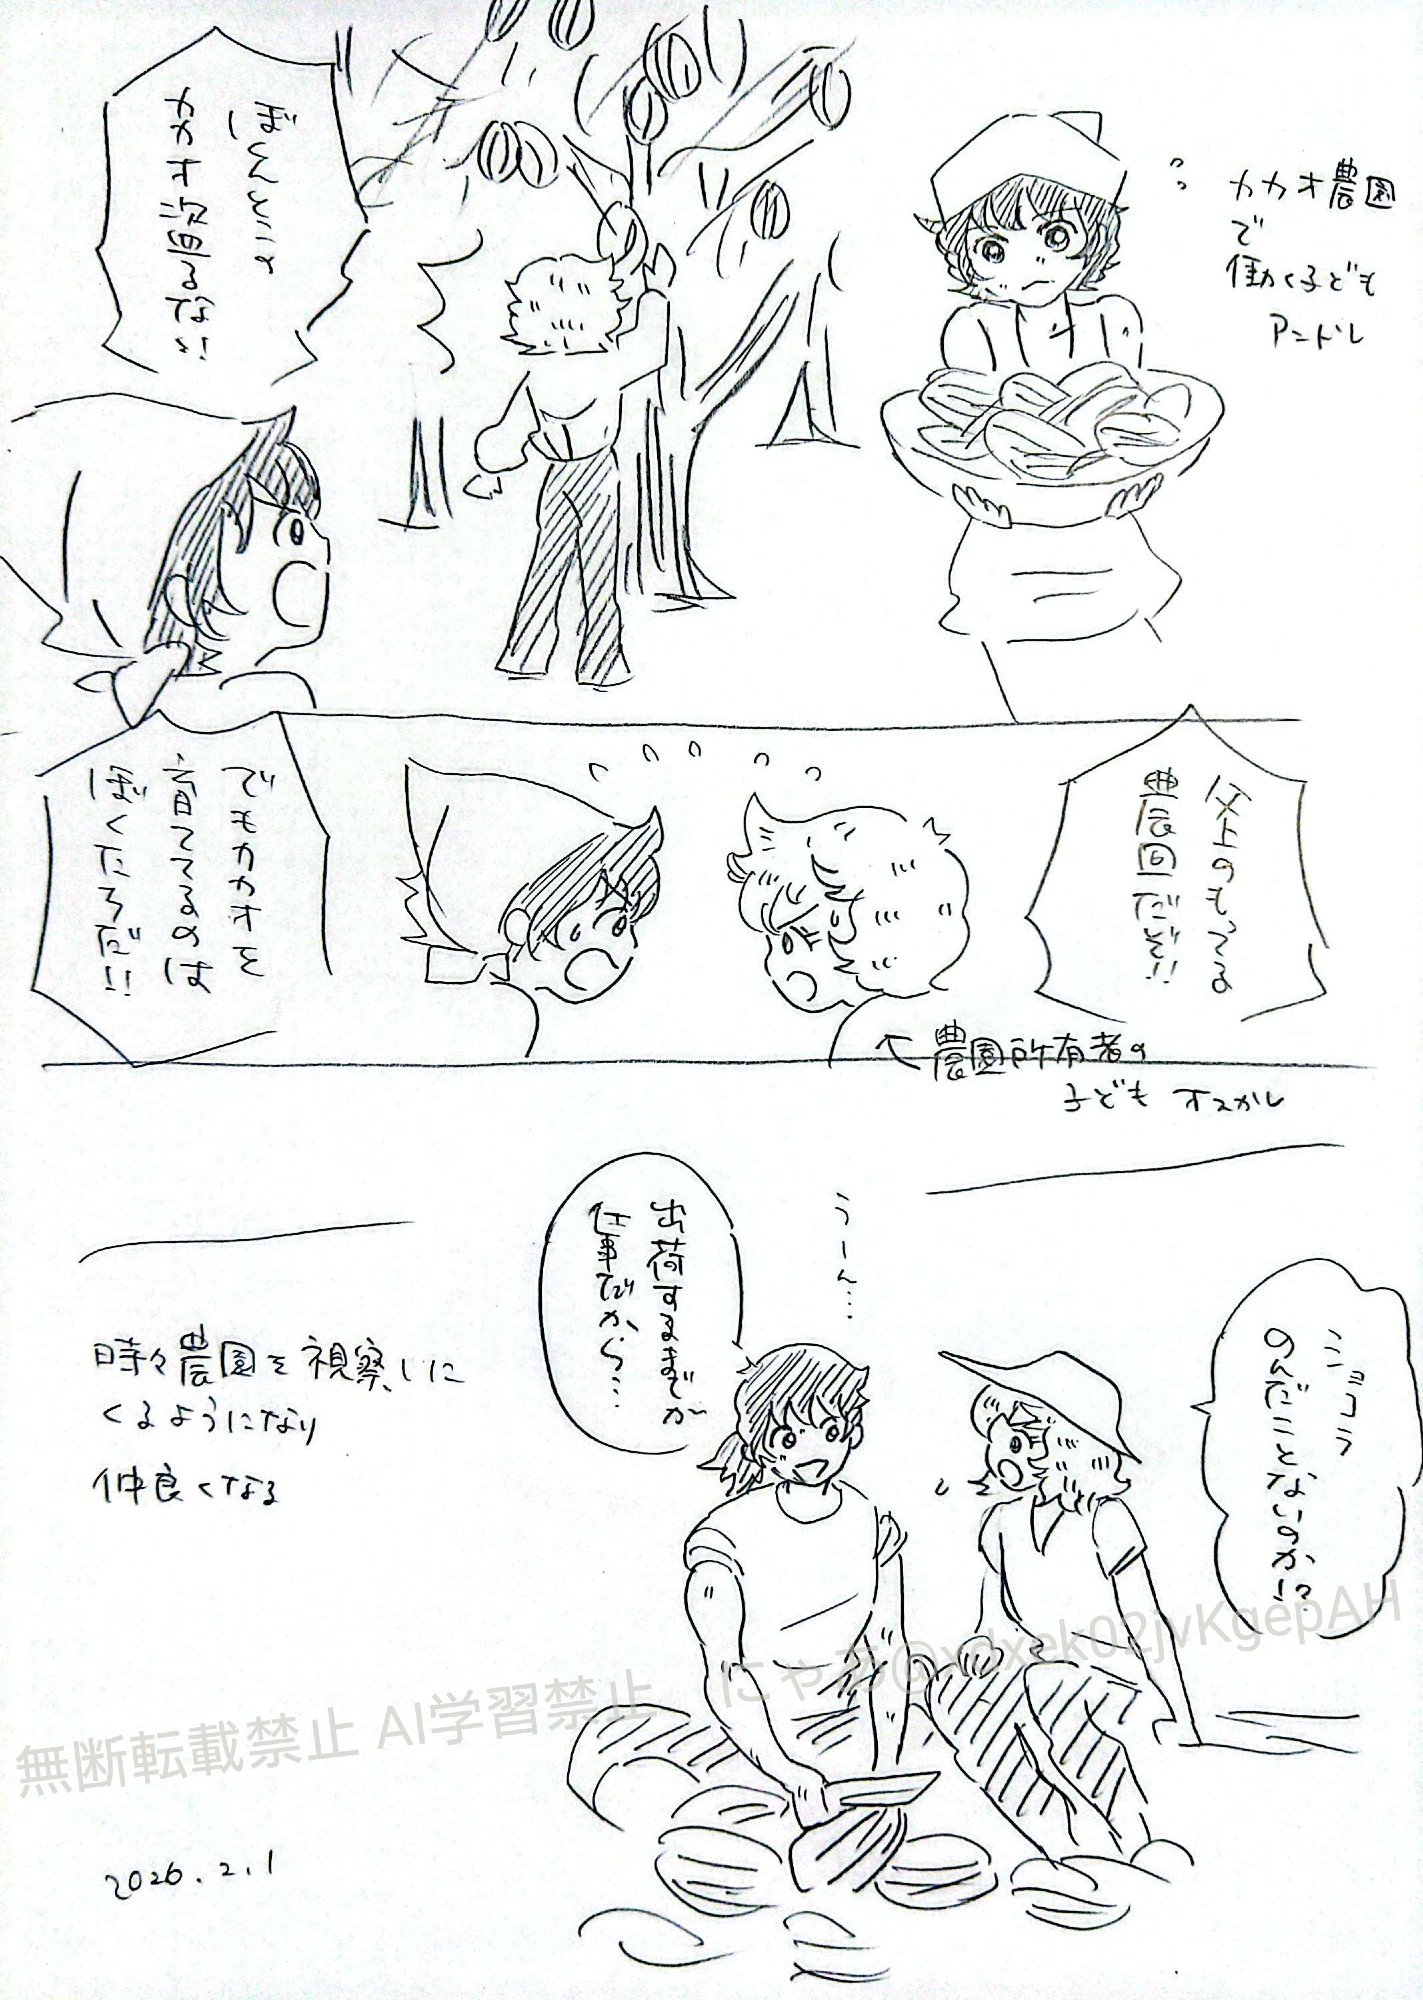 カカオ農園
で
働く子ども
アンドレ
ぼくんとこの
カカオ盗るな!!
父上のもってる
農園だぞ!!
でもカカオを
育ててるのは
ぼくたちだ!!
農園所有者の
子ども オスカル
ショコラ
のんだことないのか!?
うーん…
出荷するまでが
仕事だから…
時々農園を視察しに
くるようになり
仲良くなる
無断転載禁止 AI学習禁止 にゃあ@xdxek02jvKgepAH
2026.2.1